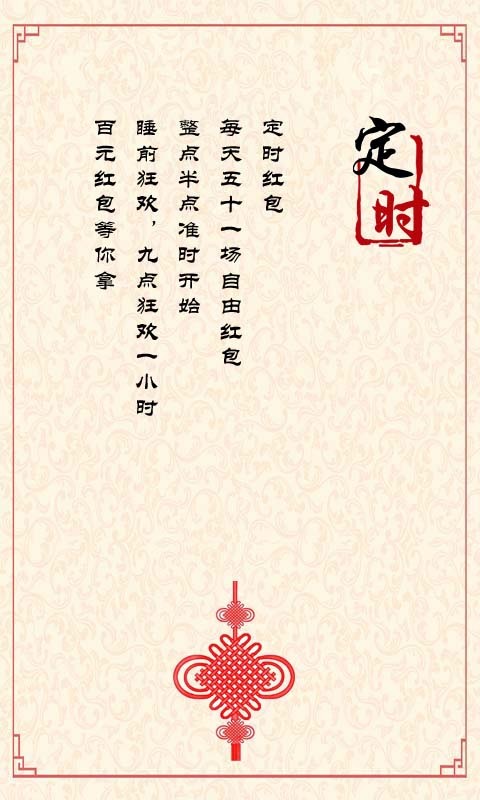 定时
定时红包
每天五十一场自由红包
整点半点准时开始
睡前狂欢，九点狂欢一小时
百元红包等你拿